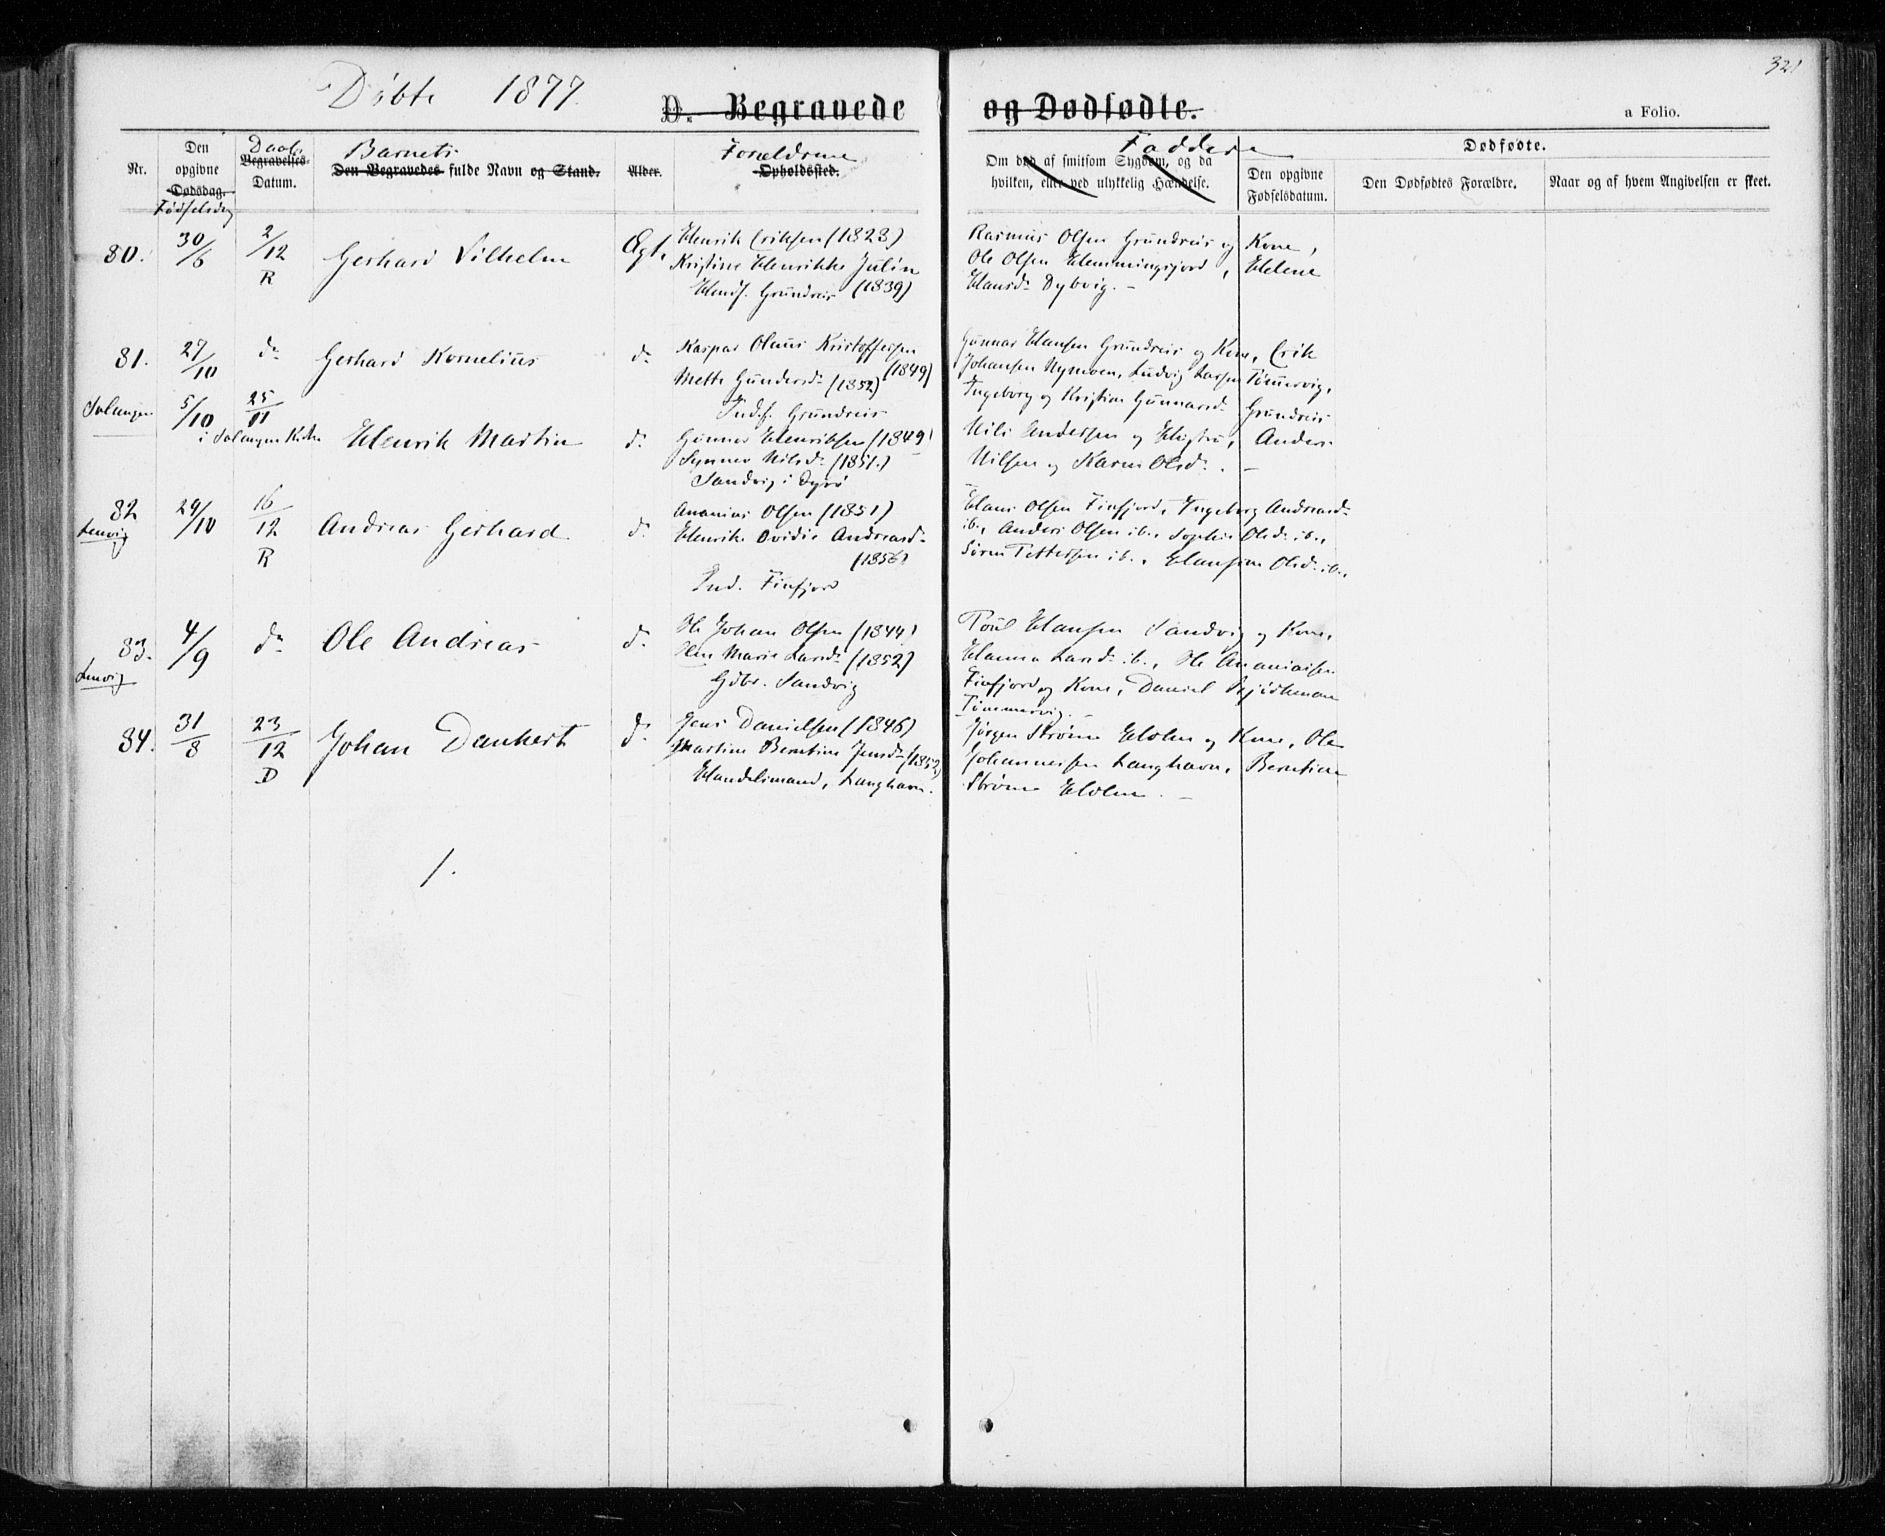 321
Döbte 1877.
D. Begravede og Dødfødte.
a Folio.
Nr.
Den opgivne Dødsdag. Fødselsdag
Daabs Begravelses- Datum.
Barnets
Den Begravedes fulde Navn og Stand.
Alder.
Forældrene
Opholdssted.
Faddere
Om død af smitsom Sygdom, og da
hvilken, eller ved ulykkelig Hændelse.
Den opgivne
Fødselsdatum.
Dødfødte.
Den Dødfødtes Forældre.
Naar og af hvem Angivelsen er skeet.
80. 30/6 2/12 R Gerhard Vilhelm Ægt.
Henrik Eriksen (1823)
Kristine Henrikke Julin
(1839)
Grundreis
Rasmus Olsen Grundreis og Kone,
Ole Olsen Hemmingsfjord, Helene
Hansd. Dybvig. –
81. 27/10 do Gerhard Kornelius do
Kaspar Olaus Kristoffersen
(1849)
Mette Gundersd. (1852)
Inds. Grundreis
Gunnar Hansen Grundreis og Kone, Erik
Johansen Nymoen, Ludvig Larsen Tømmervig,
Ingeborg og Kristine Gunnarsd. Grundreis
Salangen 5/10 25/11
i Salangen Kirke Henrik Martin do
Gunnar Henriksen (1849)
Synnev Nilsd. (1851.)
Sandvig i Dyrö
Nils Andersen og Hustru, Anders
Nilsen og Karen Olsd. . –
82 Lenvig 29/10 16/12 R Andreas Gerhard do
Ananias Olsen (1851)
Henrikke Ovidie Andreasd.
(1856)
Ind. Finfjord
Hans Olsen Finfjord, Ingeborg Andreasd.
ib., Anders Olsen ib., Sophie Olsd. ib.,
Sören Pettersen ib., Hansine Olsd. ib.,
83. Lenvig 4/9 do Ole Andreas do
Ole Johan Olsen (1844)
Marie Larsd. (1852)
Gdbr. Sandvig
Poul Hansen Sandvig og Kone,
Hanna Larsd. ib., Ole Ananiassen
Finfjord og Kone, Daniel
Tömmervig. –
84. 31/8 23/12 D Johan Dankert do
Jens Danielsen (1846)
Martine Berntine Jensd. (1852)
Handelsmand, Langhavn.
Jörgen Ströme Holm og Kone, Ole
Johannessen Langhavn, Berntine
Ströme Holm. –
1.